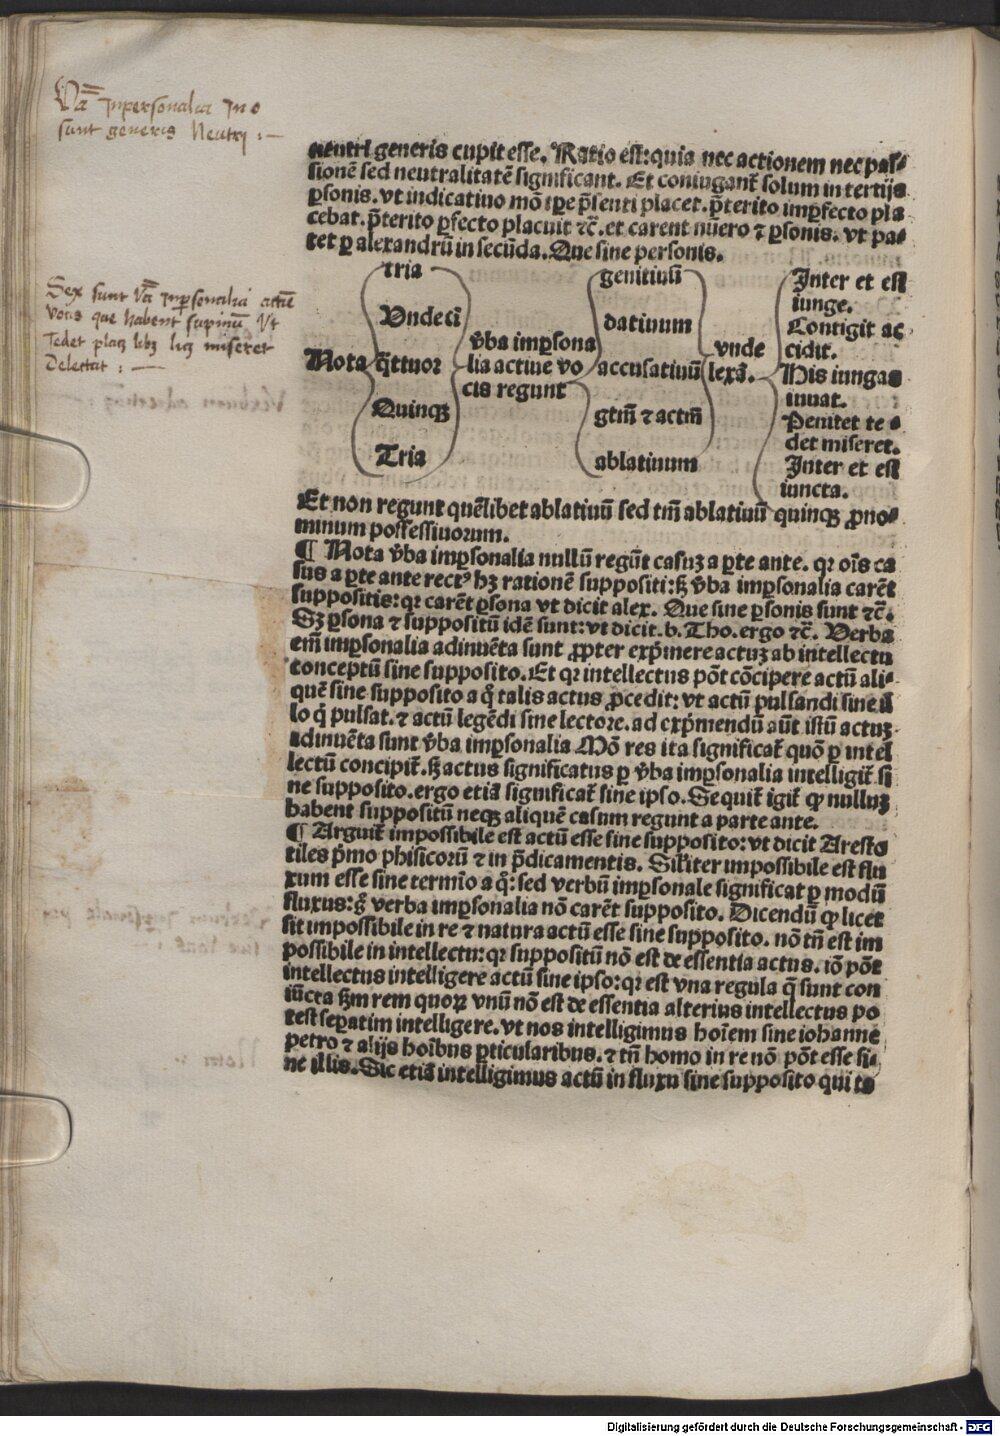 Va͞ inpersonalia in o
sunt generis Neutri :—
neutri generis cupit esse. Ratio est: quia nec actionem nec pas⸗
sionē sed neutralitatē significant. Et coniugant̄ solum in tertijs
ꝑsonis. vt indicatiuo mō tꝑe p̄senti placet. p̄terito imꝑfecto pla
cebat. p̄terito ꝑfecto placuit ⁊c̄. et carent nūero ⁊ ꝑsonis. vt pa⸗
tet ꝑ alexandrū in secūda. Que sine personis.
Sex sunt Va͞ inpersonalia actiue
vocis que habent supinum Vt
Tedet placet libet licet miseret
Delectat : —
tria
Vndeci
Nota q̄ttuor
Quinqȝ
Tria
v̄ba imꝑsona
lia actiue vo
cis regunt
genitiuū
datiuum
accusatiuū
gtm̄ ⁊ actm̄
ablatiuum
vnde
lexā.
Inter et est
iunge.
Contigit ac
cidit.
His iungas
iuuat.
Penitet te
det miseret.
Inter et est
iuncta.
Et non regunt quēlibet ablatiuū sed tm̄ ablatiuū quinqȝ ꝓno⸗
minum possessiuorum.
¶ Nota v̄ba imꝑsonalia nullū regūt casuȝ a ꝑte ante. qꝛ oīs ca
sus a ꝑte ante rectꝰ hȝ rationē suppositi: sȝ v̄ba imꝑsonalia carēt
suppositis: qꝛ carēt ꝑsona vt dicit alex. Que sine ꝑsonis sunt ⁊c̄.
Sȝ ꝑsona ⁊ suppositū idē sunt: vt dicit. b. Tho. ergo ⁊c̄. Verba
em̄ imꝑsonalia adinuēta sunt ꝓpter exp̄mere actuȝ ab intellectu
conceptū sine supposito. Et qꝛ intellectus pōt cōcipere actū ali⸗
quē sine supposito a q̊ talis actus ꝓcedit: vt actū pulsandi sine il
lo q̇ pulsat. ⁊ actū legēdi sine lectore. ad exp̄mendū aūt istū actuȝ
adinuēta sunt v̄ba imꝑsonalia Mō res ita significat̄ quō ꝑ intel
lectū concipit̄. sȝ actus significatus ꝑ v̄ba imꝑsonalia intelligit̄ si
ne supposito. ergo etiā significat̄ sine ipso. Sequit̄ igit̄ ꝙ nulluȝ
habent suppositū neqȝ aliquē casum regunt a parte ante.
¶ Arguit̄ impossibile est actū esse sine supposito: vt dicit Aresto
tiles p̄mo phisicorū ⁊ in p̄dicamentis. Sil̄iter impossibile est flu
xum esse sine termīo a q̊: sed verbū imꝑsonale significat ꝑ modū
fluxus: g̊ verba imꝑsonalia nō carēt supposito. Dicendū ꝙ licet
sit impossibile in re ⁊ natura actū esse sine supposito. nō tn̄ est im
possibile in intellectu: qꝛ suppositū nō est de essentia actus. iō pōt
intellectus intelligere actū sine ipso: qꝛ est vna regula q̄ sunt con
iūcta sm̄ rem quoꝝ vnū nō est de essentia alterius intellectus po
test seꝑatim intelligere. vt nos intelligimus hoīem sine iohanne
petro ⁊ alijs hoībus ꝑticularibus. ⁊ tn̄ homo in re nō pōt esse si⸗
ne illis. Sic etiā intelligimus actū in fluxu sine supposito qui tā
Digitalisierung gefördert durch die Deutsche Forschungsgemeinschaft - DFG